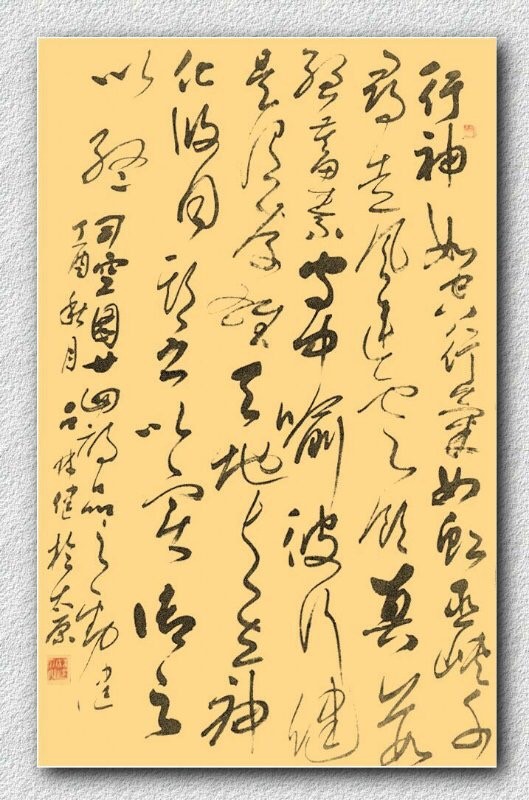 行神如空行氣如虹巫峡千
尋走風連雲飲真茹
強蓄素守中喻彼行健
是謂存雄天地與立神
化攸同期之以实御之
以終
司空圖廿四詩品之勁健
丁酉秋月健於太原